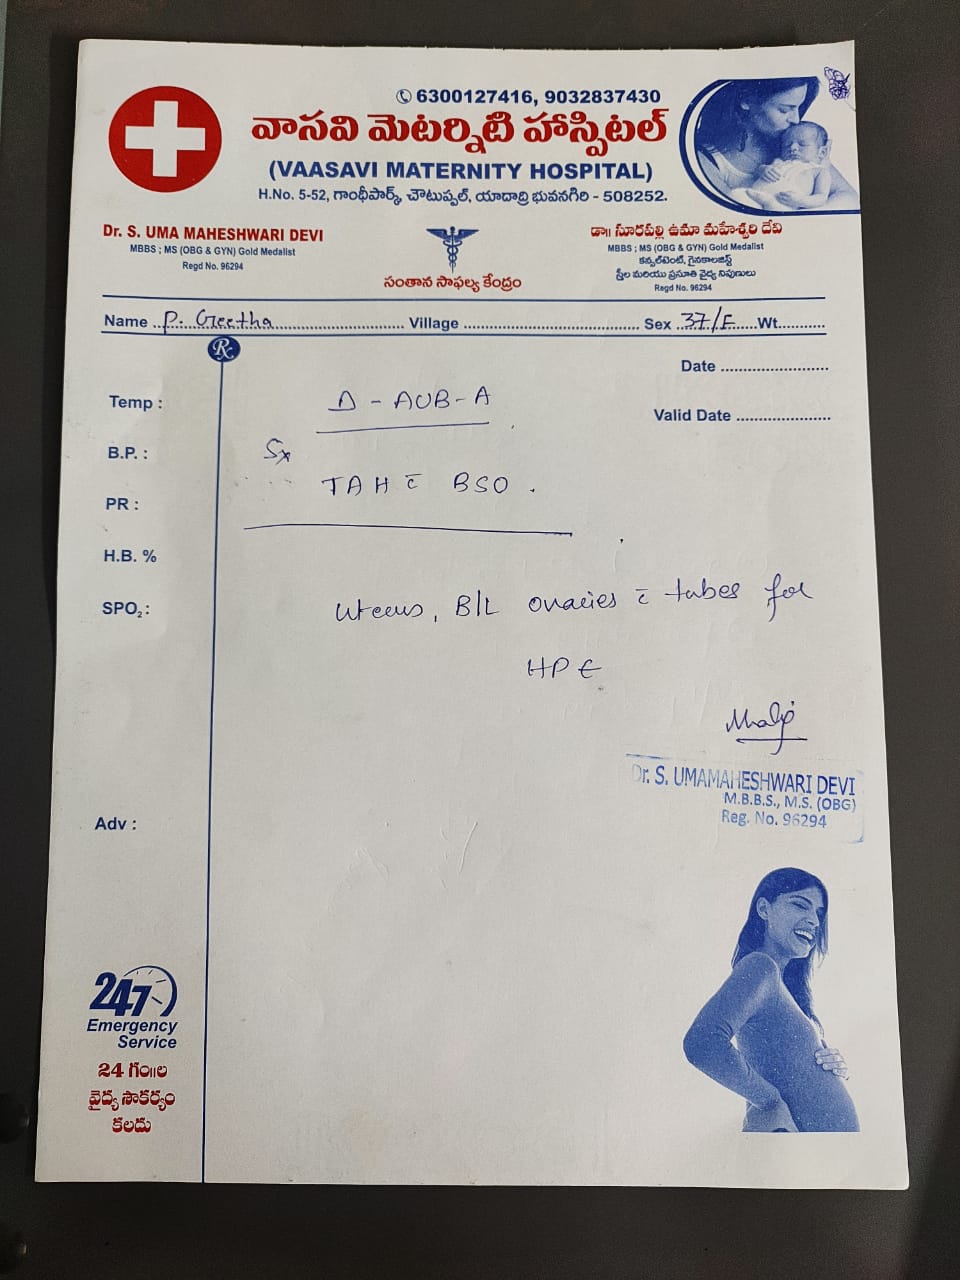 6300127416, 9032837430
వాసవి మెటర్నిటి హాస్పిటల్
(VAASAVI MATERNITY HOSPITAL)
H.No. 5-52, గాంధీపార్క్, చౌటుప్పల్, యాదాద్రి భువనగిరి - 508252.
Dr. S. UMA MAHESHWARI DEVI
MBBS ; MS (OBG & GYN) Gold Medalist
Regd No. 96294
సంతాన సాఫల్య కేంద్రం
డా॥ సూరపల్లి ఉమా మహేశ్వరి దేవి
MBBS ; MS (OBG & GYN) Gold Medalist
కన్సల్టెంట్, గైనకాలజిస్ట్
స్త్రీల మరియు ప్రసూతి వైద్య నిపుణులు
Regd No. 96294
Name P. Geetha Village Sex 37/F Wt.
Rx
Date
Temp :
Δ - AUB-A
Valid Date
B.P. :
Sx
TAH c̄ BSO.
PR :
H.B. %
SPO₂ :
Uterus, B/L ovaries c̄ tubes for
HPE
Dr. S. UMAMAHESHWARI DEVI
M.B.B.S., M.S. (OBG)
Reg. No. 96294
Adv :
247
Emergency
Service
24 గం॥ల
వైద్య సౌకర్యం
కలదు